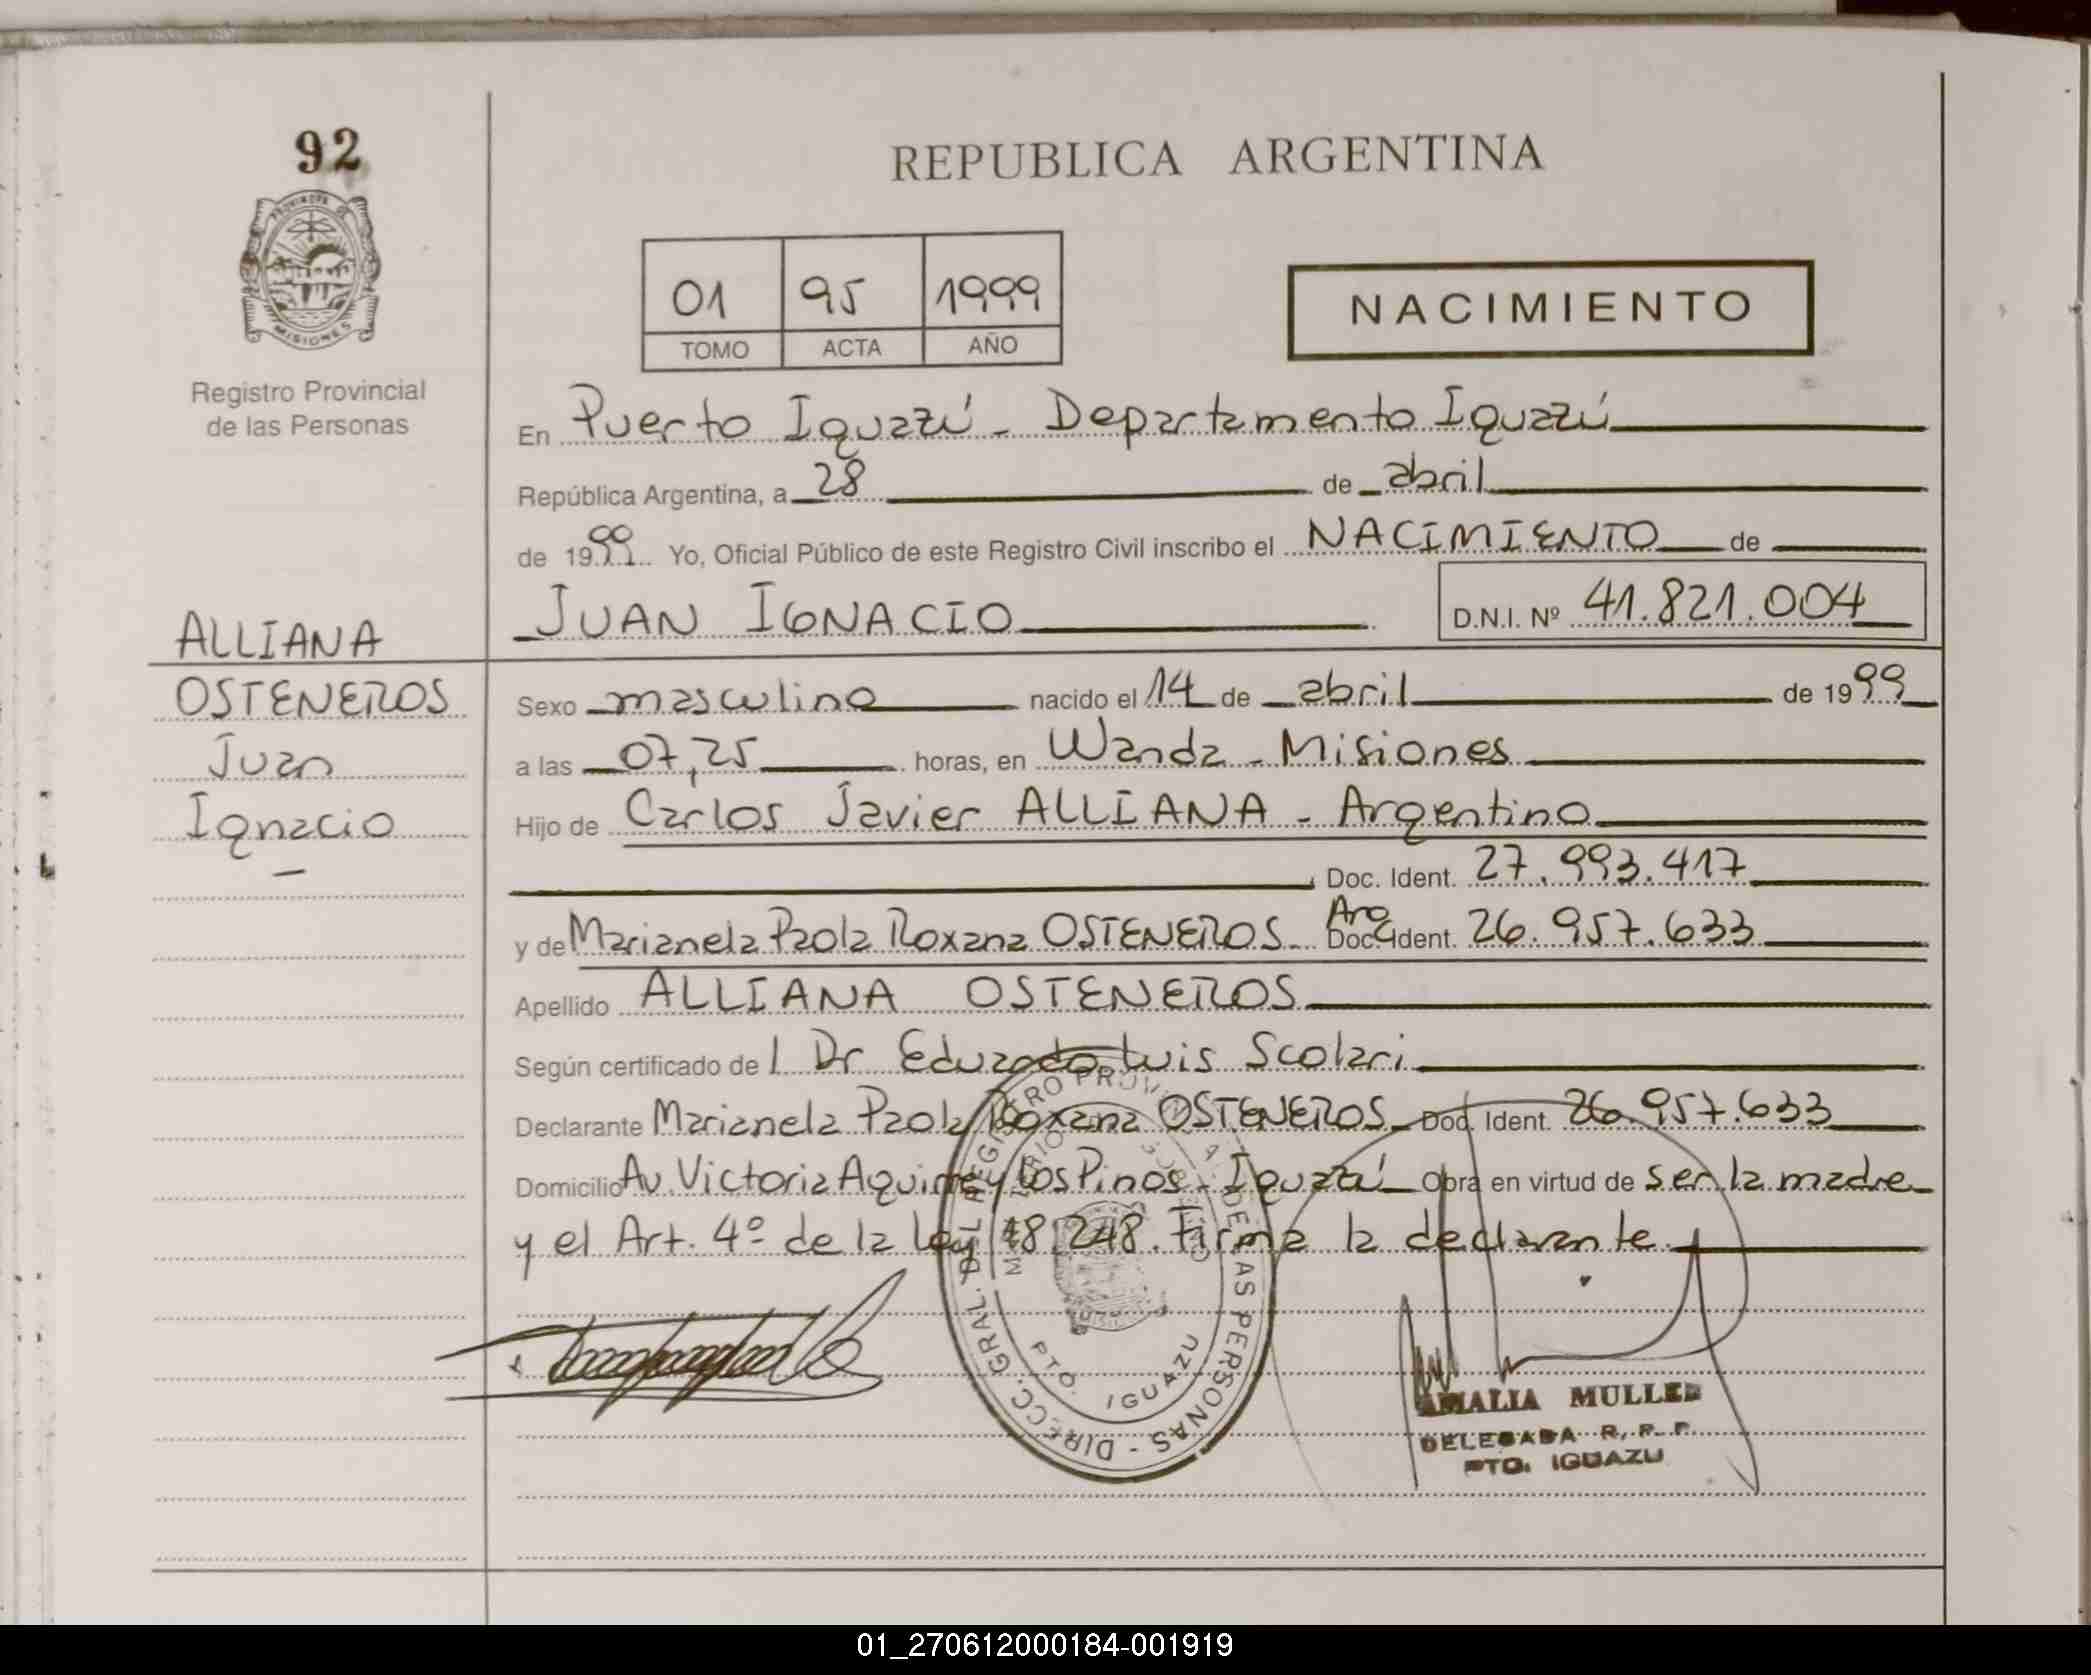 92
PROVINCIA DE
MISIONES
Registro Provincial
de las Personas
REPUBLICA ARGENTINA
01 95 1999
TOMO ACTA AÑO
NACIMIENTO
En Puerto Iguazú - Departamento Iguazú
República Argentina, a 28 de abril
de 1999 Yo, Oficial Público de este Registro Civil inscribo el NACIMIENTO de
JUAN IGNACIO D.N.I. Nº 41.821.004
ALLIANA
OSTENEROS
Juan
Ignacio
Sexo masculino nacido el 14 de abril de 1999
a las 07,25 horas, en Wanda - Misiones
Hijo de Carlos Javier ALLIANA - Argentino
Doc. Ident. 27.993.417
y de Marianela Paola Roxana OSTENEROS - Arg Doc. Ident. 26.957.633
Apellido ALLIANA OSTENEROS
Según certificado de l Dr Eduardo Luis Scolari
Declarante Marianela Paola Roxana OSTENEROS Doc. Ident. 26.957.633
Domicilio Av. Victoria Aguirre y Los Pinos - Iguazú Obra en virtud de ser la madre
y el Art. 4º de la Ley 18.248. Firma la declarante.
DIRECC. GRAL. DEL REGISTRO PROVINCIAL DE LAS PERSONAS -
PTO. IGUAZU
AMALIA MULLER
DELEGADA R. P. P.
PTO. IGUAZU
01_270612000184-001919